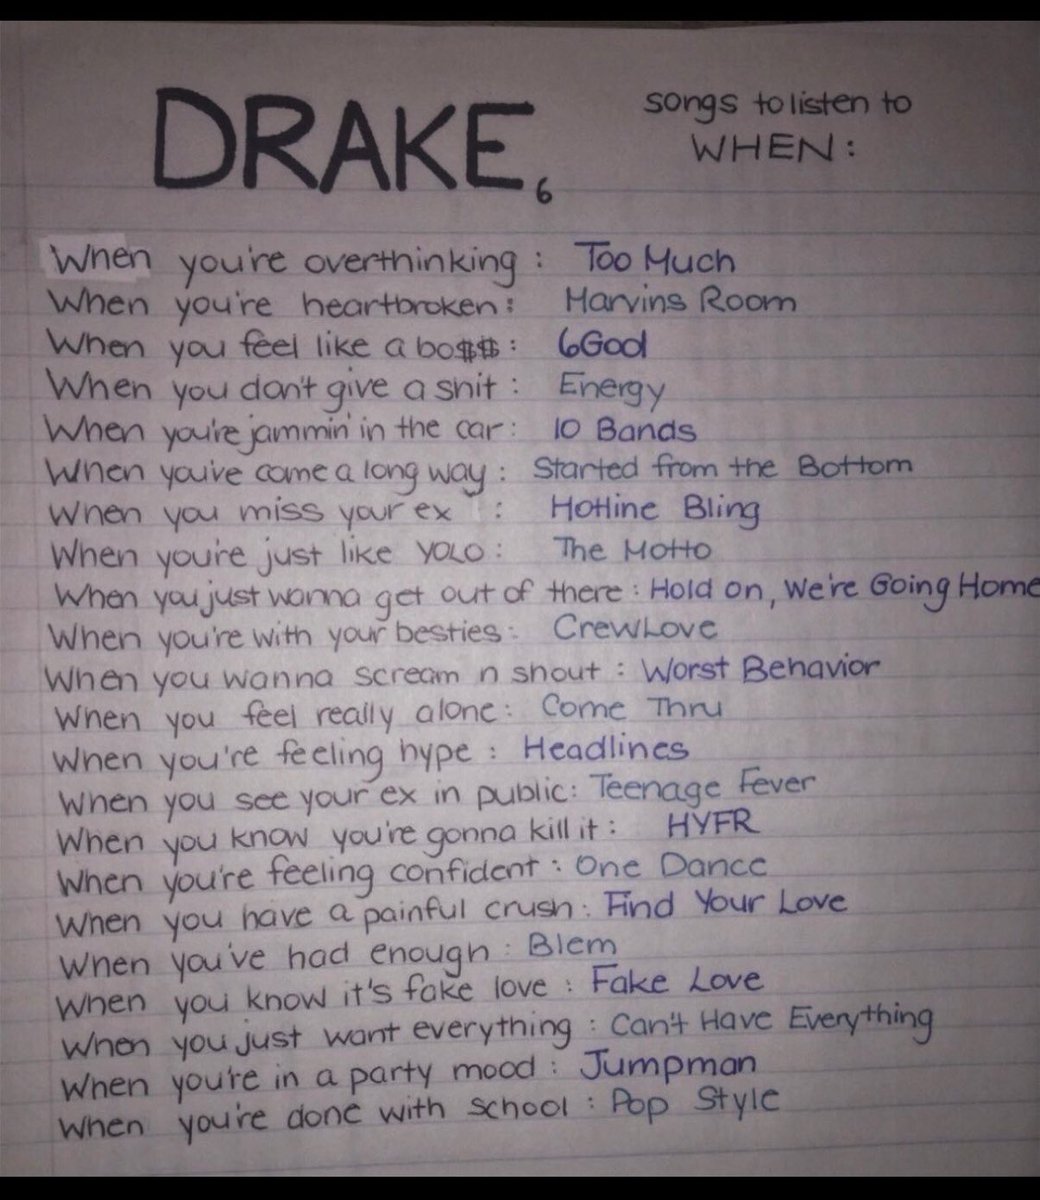 DRAKE6
songs to listen to
WHEN:
When you're overthinking: Too Much
When you're heartbroken: Marvins Room
When you feel like a bo$$: 6God
When you don't give a shit: Energy
When you're jammin' in the car: 10 Bands
When you've come a long way: Started from the Bottom
When you miss your ex: Hotline Bling
When you're just like YOLO: The Motto
When you just wanna get out of there: Hold on, We're Going Home
When you're with your besties: CrewLove
When you wanna scream n shout: Worst Behavior
When you feel really alone: Come Thru
When you're feeling hype: Headlines
When you see your ex in public: Teenage Fever
When you know you're gonna kill it: HYFR
When you're feeling confident: One Dance
When you have a painful crush: Find Your Love
When you've had enough: Blem
When you know it's fake love: Fake Love
When you just want everything: Can't Have Everything
When you're in a party mood: Jumpman
When you're done with school: Pop Style